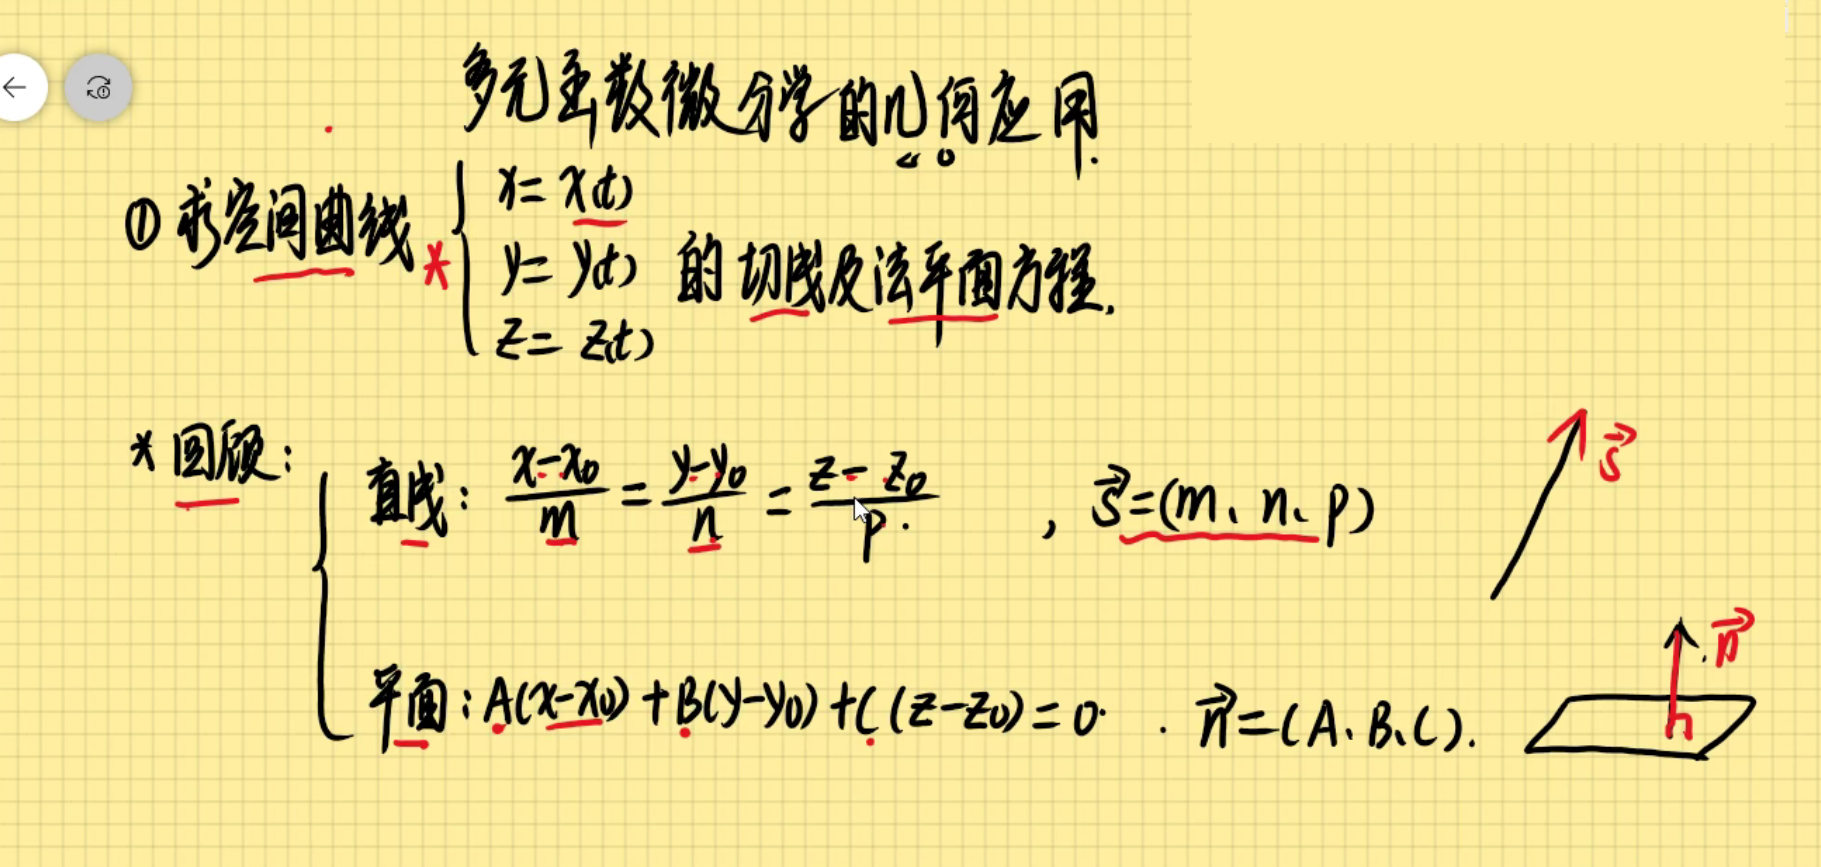 多元函数微分学的几何应用.
① 求空间曲线 * { x = x(t)
y = y(t) 的切线及法平面方程.
z = z(t)
* 回顾:
直线: (x-x₀)/m = (y-y₀)/n = (z-z₀)/p , s⃗=(m、n、p)
s⃗
平面: A(x-x₀)+B(y-y₀)+C(z-z₀)=0. n⃗=(A、B、C).
n⃗